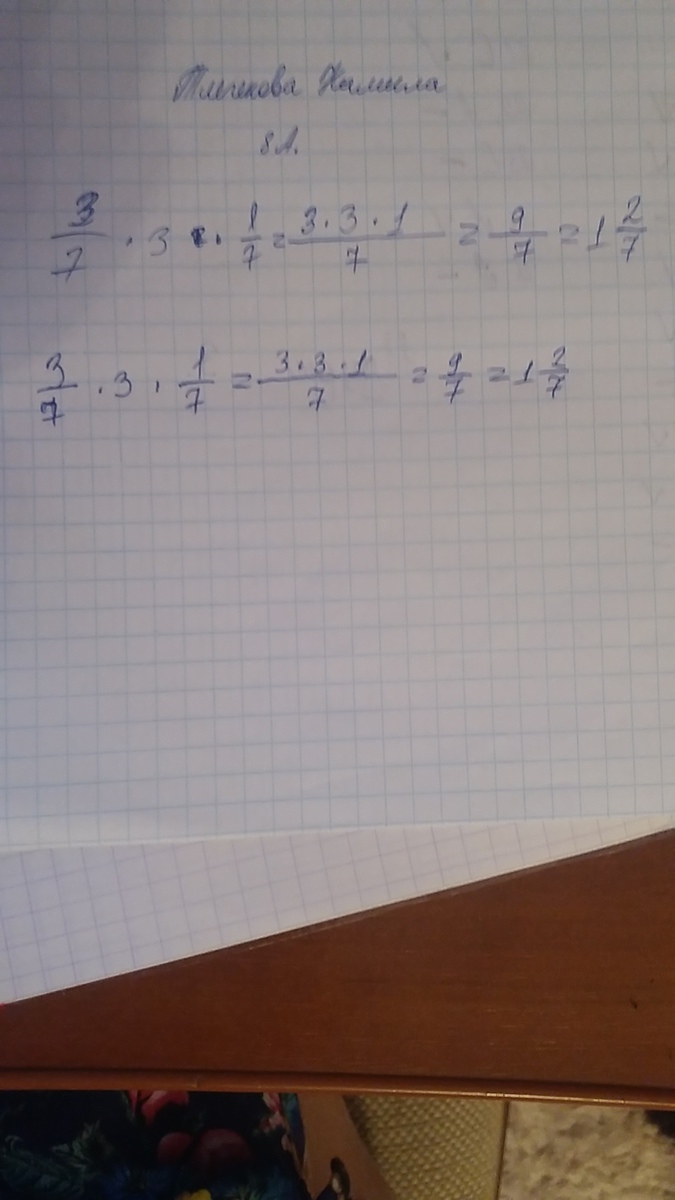 Тлегенова Камила
8А.
3/7 · 3 · 1/7 = 3·3·1/7 = 9/7 = 1 2/7
3/7 · 3 · 1/7 = 3·3·1/7 = 9/7 = 1 2/7